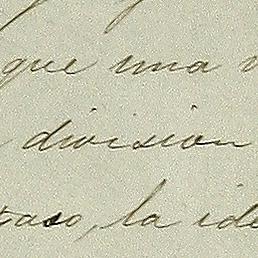 que una
division
paso, la ide